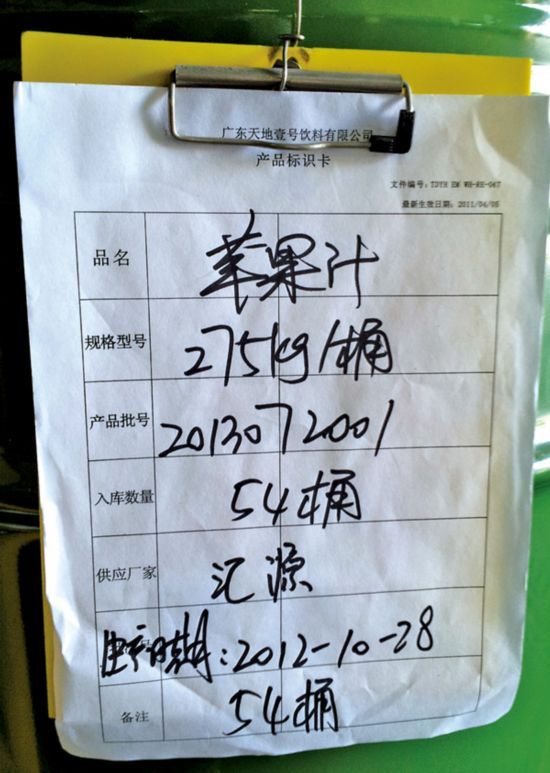 广东天地壹号饮料有限公司
产品标识卡
文件编号：TDYH EM WH-RE-047
最新生效日期：2011/04/05
品名 苹果汁
规格型号 275kg/桶
产品批号 2013072001
入库数量 54桶
供应厂家 汇源
生产日期：2012-10-28
备注 54桶